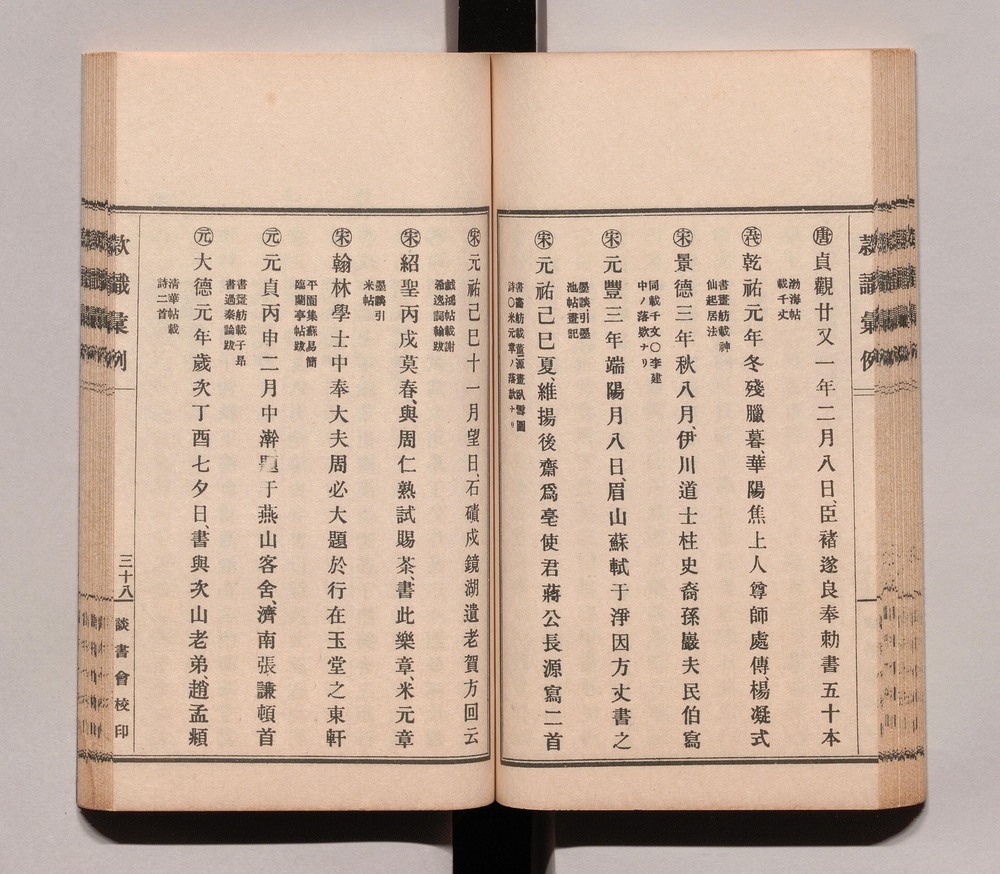 唐貞觀廿又一年二月八日、臣褚遂良奉勅書五十本
渤海帖
載千文
乾祐元年冬殘臘暮、華陽焦上人尊師處傳、楊凝式
書畫舫載神
仙起居法
宋景德三年秋八月、伊川道士柱史裔孫巖夫民伯寫
同載千文〇李建
中ノ落欵ナリ
宋元豐三年端陽月八日、眉山蘇軾于淨因方丈書之
墨談引墨
池帖畫記
宋元祐己巳夏、維揚後齋爲亳使君蔣公長源寫二首
書畫舫載董源畫臥雪圖
詩〇米元章ノ落款ナリ
宋元祐己巳十一月望日、石磧戍鏡湖遺老賀方回云
戲鴻帖載謝
希逸詞翰跋
宋紹聖丙戌莫春、與周仁熟試賜茶、書此樂章、米元章
墨談引
米帖
宋翰林學士中奉大夫周必大題於行在玉堂之東軒
平園集蘇易簡
臨蘭亭帖跋
元元貞丙申二月中澣題于燕山客舍、濟南張謙頓首
書畫舫載子昂
書過秦論跋
元大德元年歲次丁酉七夕日、書與次山老弟、趙孟頫
清華帖載
詩二首
款識彙例
三十八
談書會校印